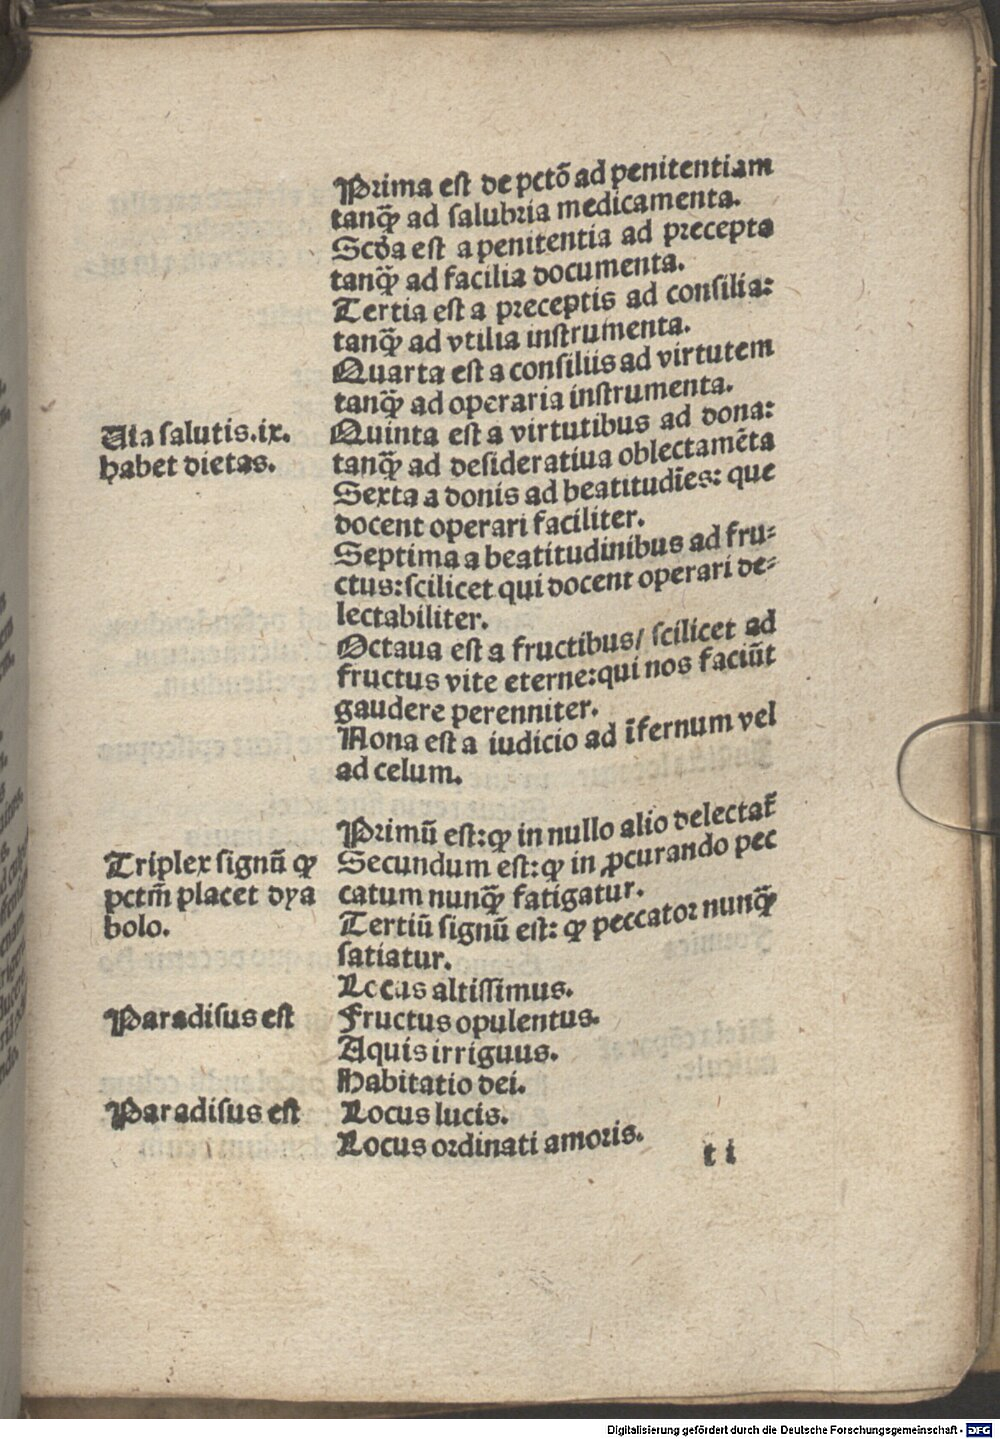 Prima est de pctō ad penitentiam
tanꝙ̃ ad salubria medicamenta.
Scďa est a penitentia ad precepta
tanꝙ̃ ad facilia documenta.
Tertia est a preceptis ad consilia:
tanꝙ̃ ad vtilia instrumenta.
Quarta est a consiliis ad virtutem
tanꝙ̃ ad operaria instrumenta.
Uia salutis .ix.
habet dietas.
Quinta est a virtutibus ad dona:
tanꝙ̃ ad desideratiua oblectamēta
Sexta a donis ad beatitudīes: que
docent operari faciliter.
Septima a beatitudinibus ad fru⸗
ctus: scilicet qui docent operari de⸗
lectabiliter.
Octaua est a fructibus/ scilicet ad
fructus vite eterne: qui nos faciūt
gaudere perenniter.
Nona est a iudicio ad īfernum vel
ad celum.
Triplex signū ꝙ
pctm̄ placet dya
bolo.
Primū est: ꝙ in nullo alio delectat̄
Secundum est: ꝙ in ꝓcurando pec
catum nunꝙ̃ fatigatur.
Tertiū signū est: ꝙ peccator nunꝙ̃
satiatur.
Paradisus est
Locus altissimus.
Fructus opulentus.
Aquis irriguus.
Paradisus est
Habitatio dei.
Locus lucis.
Locus ordinati amoris.
t i
Digitalisierung gefördert durch die Deutsche Forschungsgemeinschaft - DFG